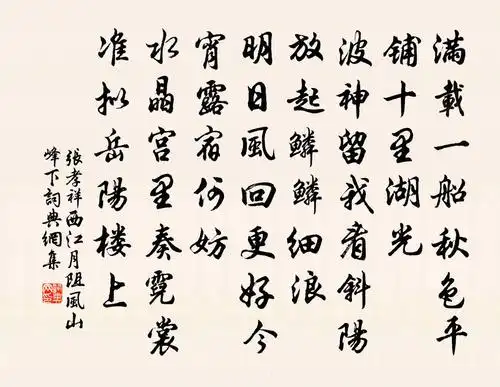 滿載一船秋色平
铺十里湖光
波神留我看斜陽
放起鳞鳞細浪
明日風回更好今
宵露宿何妨
水晶宮里奏霓裳
准拟岳陽楼上
張孝祥西江月阻風山
峰下詞典網集